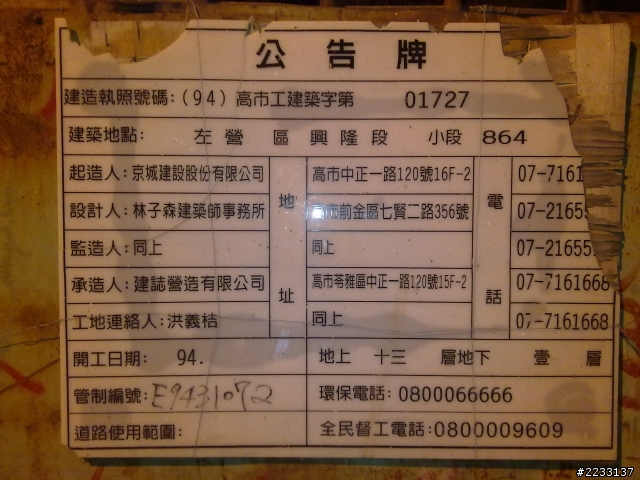 公告牌
建造執照號碼:(94)高市工建築字第 01727
建築地點: 左營區興隆段 小段 864
起造人:京城建設股份有限公司 地 高市中正一路120號16F-2 電 07-7161
設計人:林子森建築師事務所 高市前金區七賢二路356號 07-21655
監造人:同上 同上 07-21655
承造人:建誌營造有限公司 址 高市苓雅區中正一路120號15F-2 話 07-7161668
工地連絡人:洪義桔 同上 07-7161668
開工日期: 94. 地上 十三 層地下 壹 層
管制編號:E9431072 環保電話:0800066666
道路使用範圍: 全民督工電話:0800009609
#2233137